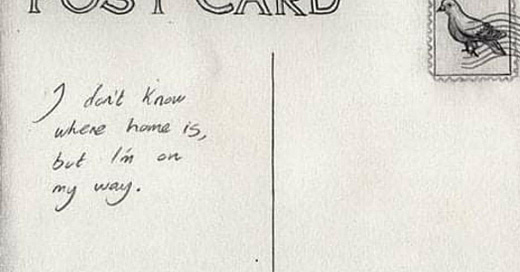 POST CARD
I don't know
where home is,
but I'm on
my way.